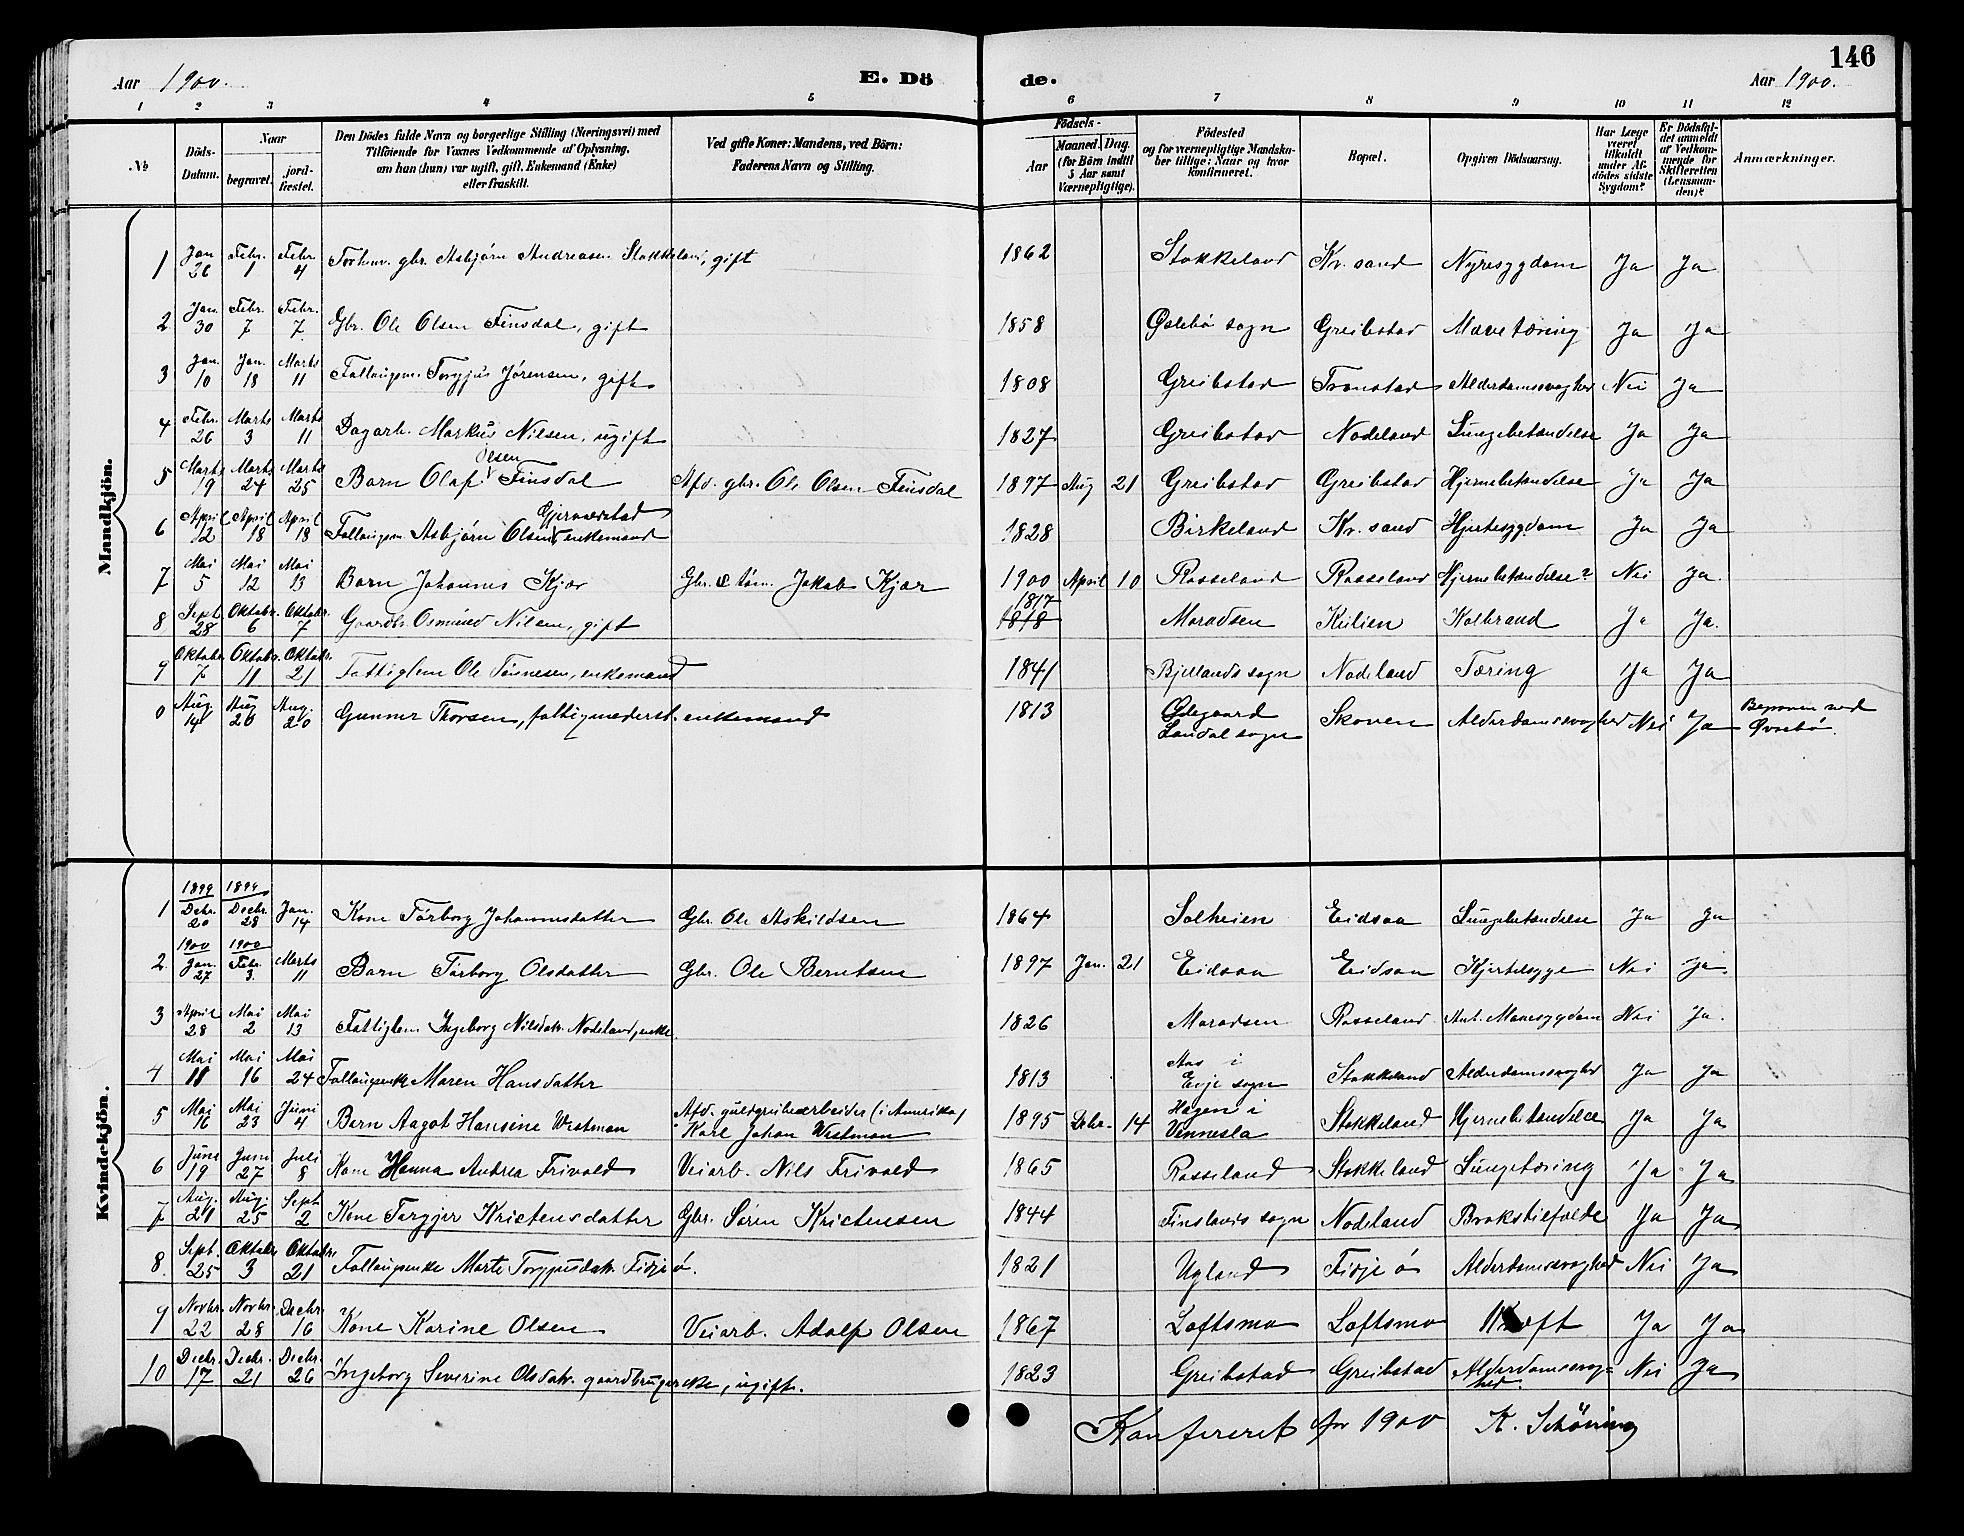 146
Aar 1900. E. Dö de. Aar 1900.
1 2 3 4 5 6 7 8 9 10 11 12
№ Döds-Datum. Naar begravet. jord-fæstet. Den Dödes fulde Navn og borgerlige Stilling (Næringsvei) med Tilföiende for Voxnes Vedkommende af Oplysning, om han (hun) var ugift, gift, Enkemand (Enke) eller fraskilt. Ved gifte Koner: Mandens, ved Börn: Faderens Navn og Stilling. Födsels- Aar Maaned. Dag. (for Börn indtil 5 Aar samt Værnepligtige). Födested og for værnepligtige Mandskaber tillige: Naar og hvor konfirmeret. Bopæl. Opgiven Dödsaarsag. Har Læge været tilkaldt under Afdödes sidste Sygdom? Er Dödsfaldet anmeldt af Vedkommende for Skifteretten (Lensmanden)? Anmærkninger.
Mandkjön.
1 Jan 26 Febr. 1 Febr. 4 gbr. Asbjørn Andreasen Stokkeland, gift 1862 Stokkeland Kr.sand Nyresygdom Ja Ja
2 Jan. 30 Febr. 7 Febr. 7. Gbr. Ole Olsen Finsdal, gift 1858 Øslebø sogn Greibstad Mavetæring Ja Ja
3 Jan. 10 Jan. 18 Marts 11 Follaugsm. Torgjus Jørensen, gift 1808 Greibstad Tronstad Alderdomssvaghed Nei Ja
4 Febr. 26 Marts 3 Marts 11 Dagarb. Markus Nilsen, ugift 1827 Greibstad Nodeland Lungebetændelse Ja Ja
5 Marts 19 Marts 24 Marts 25 Barn Olaf Olsen Finsdal Afd. gbr. Ole Olsen Finsdal 1897 Aug 21 Greibstad Greibstad Hjernebetændelse Ja Ja
6 April 12 April 18 April 18 Follaugsm. Asbjørn Olsen Gjervoldstad enkemand 1828 Birkeland Kr.sand Hjertesygdom Ja Ja
7 Mai 5 Mai 12 Mai 13 Barn Johannes Kjær Gbr. & tøm. Jakob Kjær 1900 April 10 Rosseland Rosseland Hjernebetændelse? Nei Ja.
8 Sept 28 Oktobr. 6 Oktobr. 7 Gaardbr. Osmund Nilsen, gift 1817 1818 Moradsen Kulien Kolbrand Ja Ja.
9 Oktobr. 7 Oktobr. 11 Oktobr. 21 Fattiglem Ole Tønnesen, enkemand 1841 Bjellands sogn Nodeland Tæring Ja Ja
0 Aug. 14 Aug 20 Aug. 20 Gunner Thorsen, fattigunderst. enkemand 1813 Ødegaard Laudal sogn Skoven Alderdomssvaghed Nei Ja Begraven ved Øvrebø.
Kvindekjön.
1 1899 Decbr. 20 1899 Decbr. 28 Jan. 14 Kone Torborg Johannesdatter Gbr. Ole Askildsen 1864 Solheien Eidsaa Lungebetændelse Ja Ja
2. 1900 Jan. 27 1900 Febr. 3. Marts 11 Barn Torborg Olsdatter Gbr. Ole Berntsen 1897 Jan. 21 Eidsaa Eidsaa Hjertesyge Nei Ja
3 April 28 Mai 2 Mai 13 Fattiglem Ingeborg Nilsdatr. Nodeland, enke. 1826 Moradsen Rosseland Ant. Mavesygdom Nei Ja.
4 Mai 11 Mai 16 Mai 24 Follaugsenke Maren Hansdatter 1813 Aas i Evje sogn Stokkeland Alderdomssvaghed Ja Ja
5 Mai 16 Mai 23 Juni 4 Barn Aagot Hansine Westman Afd. guldgrubearbeider (i Amerika) Karl Johan Westman 1895 Debr. 14 Hagen i Vennesla Stokkeland Hjernebetændelse Ja Ja
6 Juni 19 Juni 27 Juli 8 Kone Hanna Andrea Frivold Veiarb. Nils Frivold 1865 Rosseland Stokkeland Lungetæring Ja Ja
7 Aug. 21 Aug. 25 Sept 2 Kone Torgjer Kristensdatter Gbr. Søren Kristensen 1844 Finslands sogn Nodeland Brokstilfælde Ja Ja
8. Sept. 25 Oktobr 3 Oktobr. 21 Follaugsenke Marte Torgjusdatr. Fidje ø. 1821 Ugland Fidje ø Alderdomssvaghed Nei Ja
9 Novbr. 22 Novbr. 28 Decbr. 16 Kone Karine Olsen Veiarb. Adolf Olsen 1867 Loftsmo Loftsmo Kræft Ja Ja
10 Decbr. 17 Decbr. 21 Decbr. 26 Ingeborg Severine Olsdatr. gaardbrugerske, ugift. 1823 Greibstad Greibstad Alderdomssvaghed. Nei Ja
Konfereret for 1900 K. Schöning